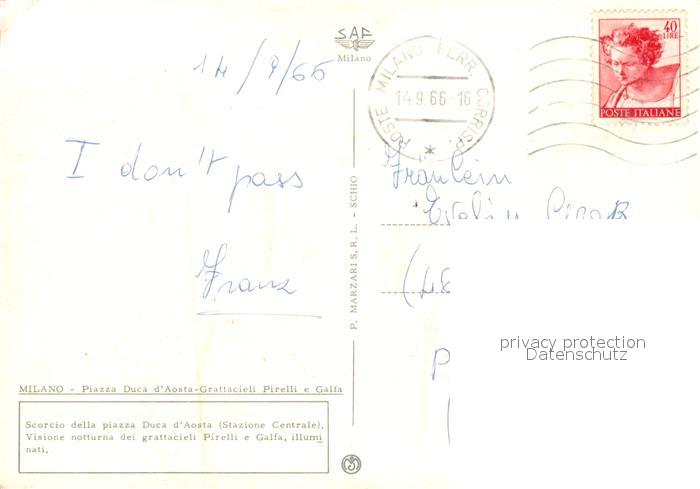 SAF
Milano
14/9/66
POSTE MILANO FERR. CORRISP.
14.9.66-16
*
40
LIRE
POSTE ITALIANE
I don't pass
Franz
Fräulein
(48
P
P. MARZARI S.R.L. - SCHIO
privacy protection
Datenschutz
MILANO - Piazza Duca d'Aosta-Grattacieli Pirelli e Galfa
Scorcio della piazza Duca d'Aosta (Stazione Centrale).
Visione notturna dei grattacieli Pirelli e Galfa, illumi
nati,